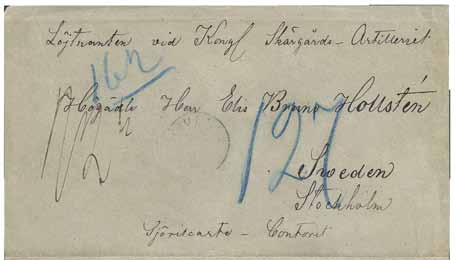 Löjtnanten vid Kongl Skärgårds-Artilleriet
16 1/2
Högädle Herr Elis Bruno Hollstén
127
Sweden
Stockholm
Sjöcarte - Contoret